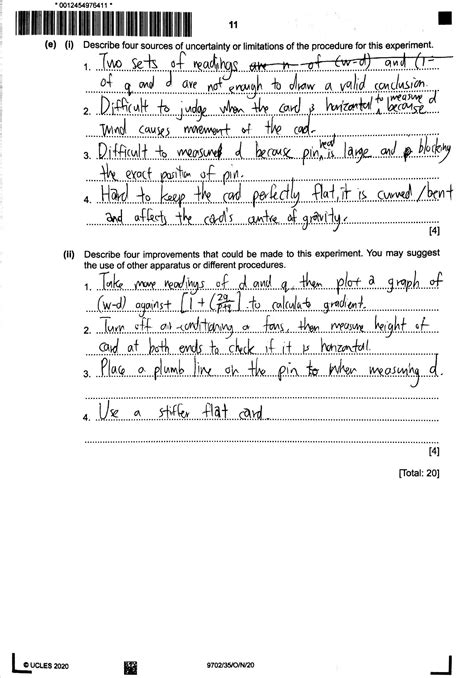 * 0012454976411 *
11
(e) (i) Describe four sources of uncertainty or limitations of the procedure for this experiment.
1. Two sets of readings are n of (w-d) and (1-
of q and d are not enough to draw a valid conclusion.
2. Difficult to judge when the card is horizontal to measure d because
wind causes movement of the card.
3. Difficult to measured d because pin head is large and blocking
the exact position of pin.
4. Hard to keep the card perfectly flat, it is curved / bent
and affects the card's centre of gravity.
[4]
(ii) Describe four improvements that could be made to this experiment. You may suggest
the use of other apparatus or different procedures.
1. Take more readings of d and q, then plot a graph of
(w-d) against [1 + (2q/p+q)] to calculate gradient.
2. Turn off air-conditioning or fans, then measure height of
card at both ends to check if it is horizontal.
3. Place a plumb line on the pin to when measuring d.
4. Use a stiffer flat card.
[4]
[Total: 20]
© UCLES 2020
9702/35/O/N/20